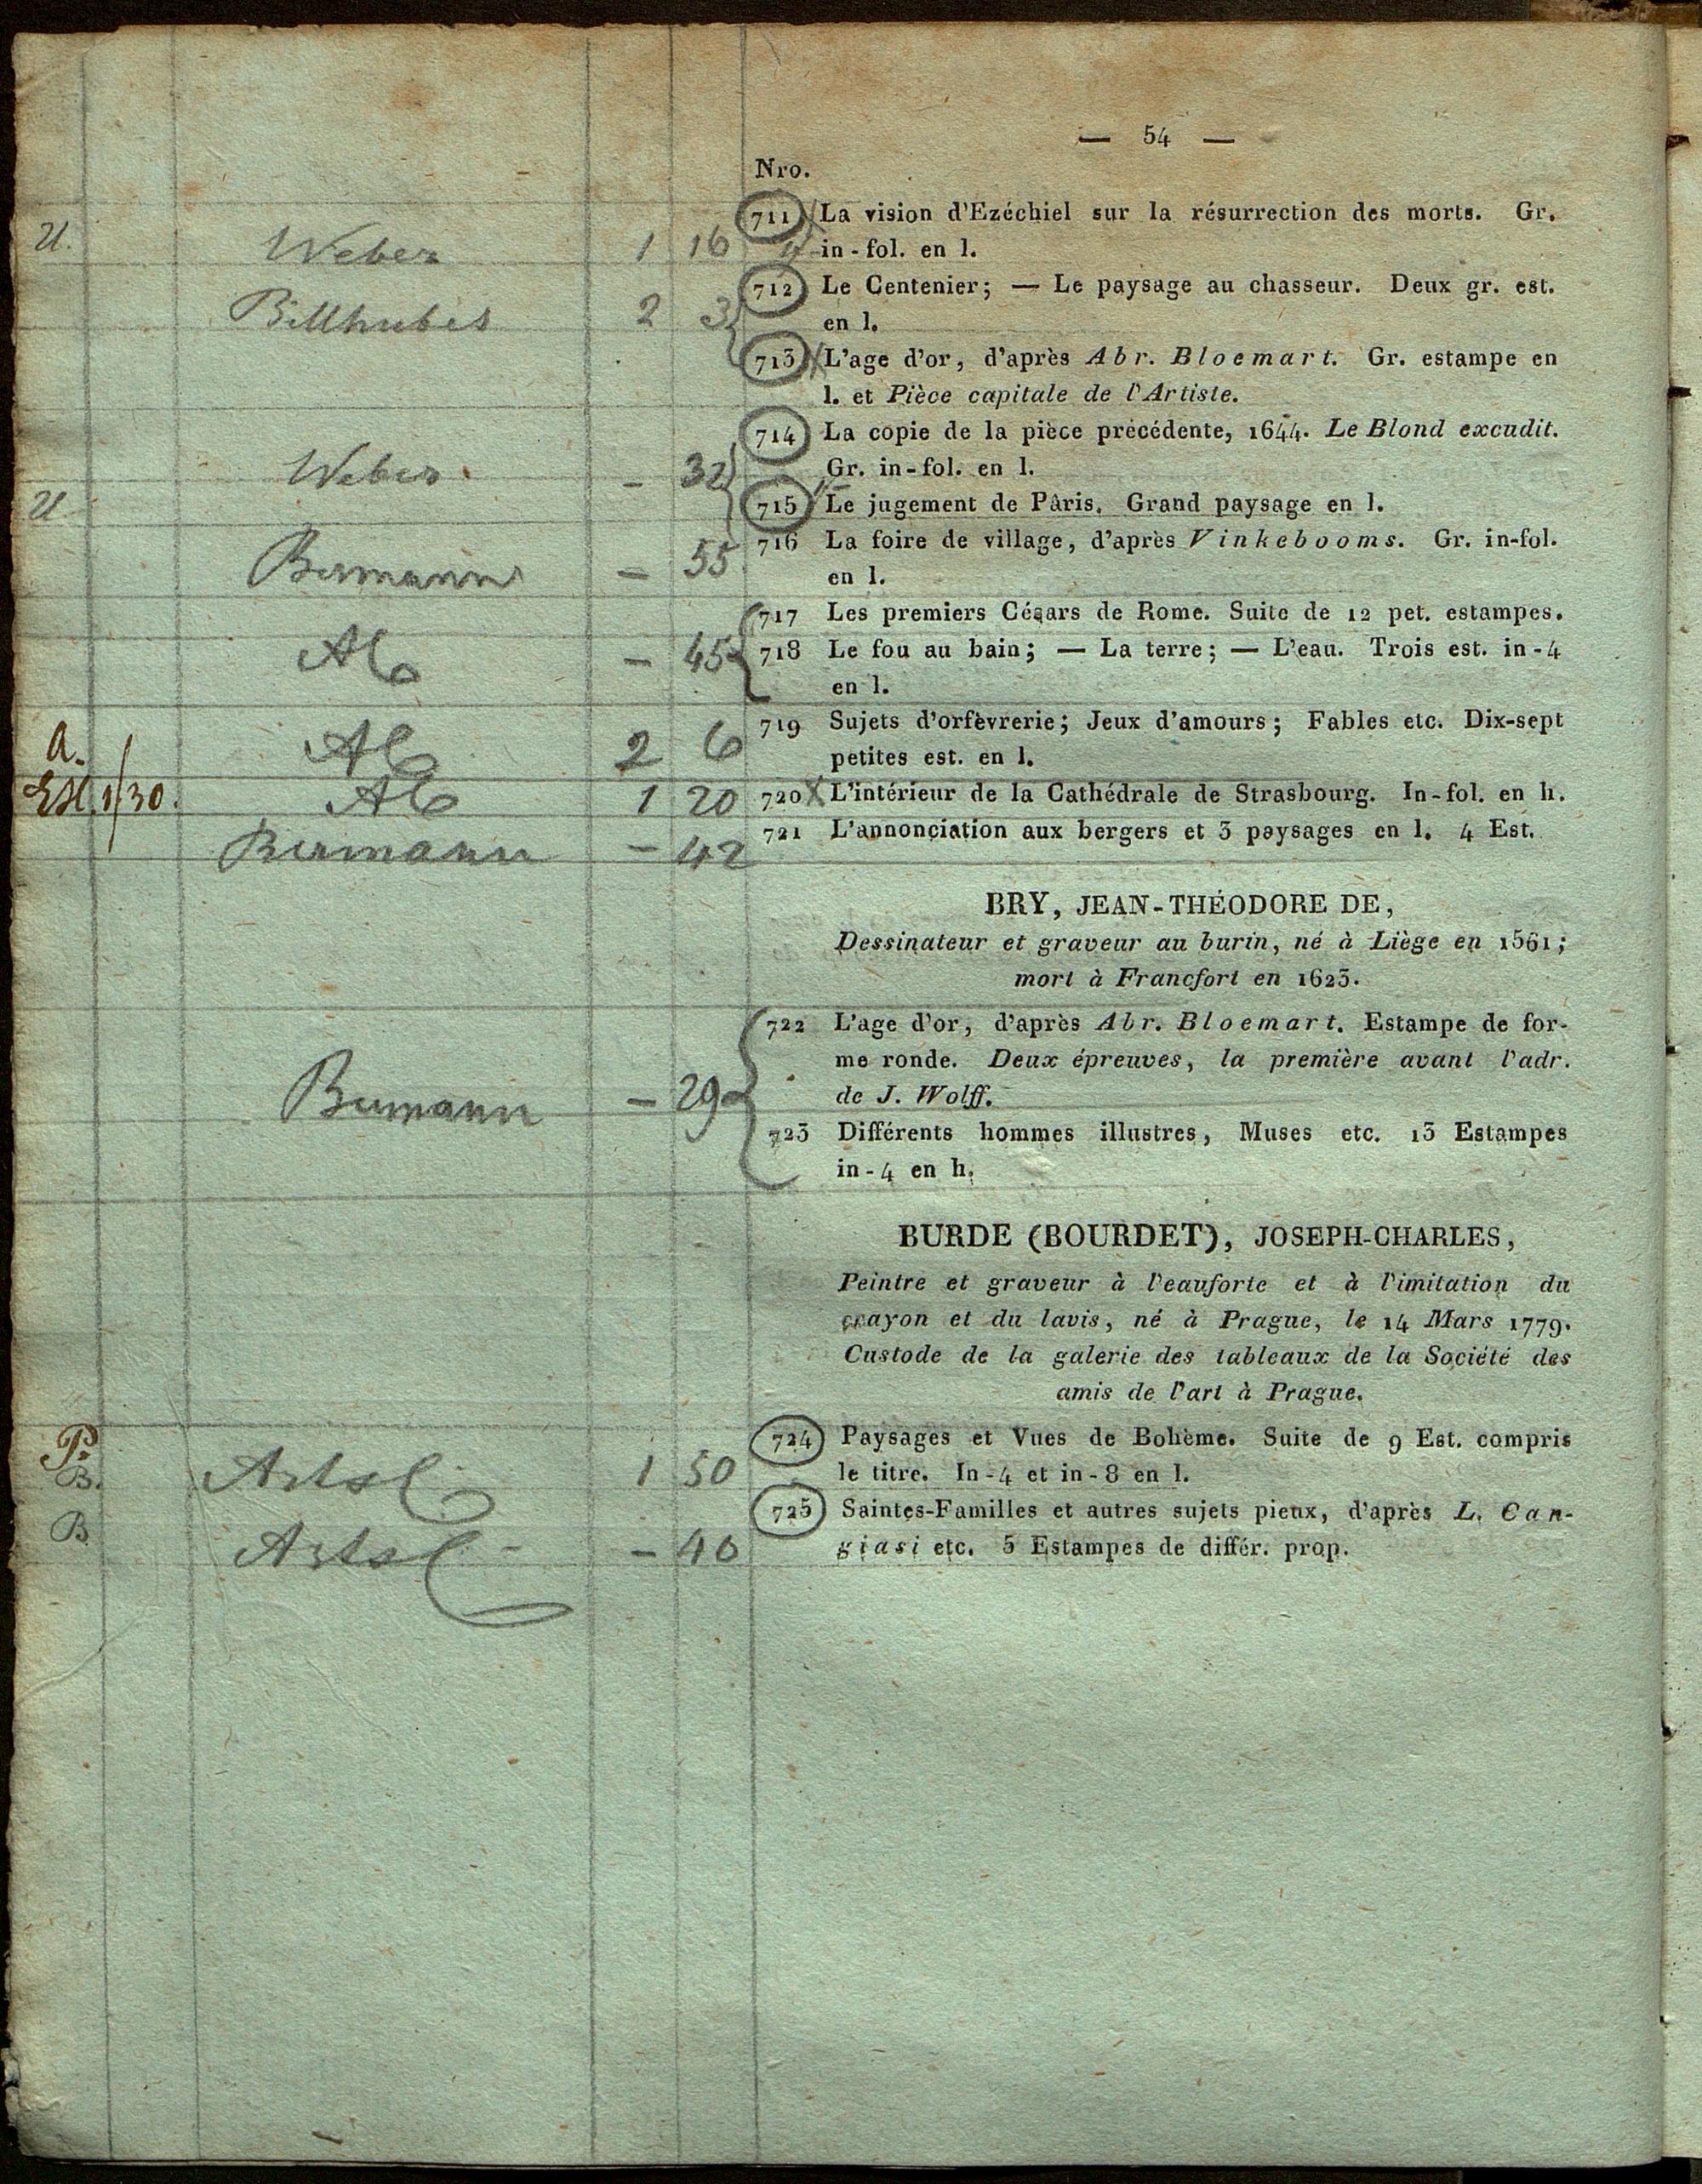 — 54 —
Nro.
711 La vision d'Ezéchiel sur la résurrection des morts. Gr.
U. Weber 1 16 in-fol. en l.
712 Le Centenier; — Le paysage au chasseur. Deux gr. est.
Billhuber 2 3 en l.
713 L'age d'or, d'après Abr. Bloemart. Gr. estampe en
l. et Pièce capitale de l'Artiste.
714 La copie de la pièce précédente, 1644. Le Blond excudit.
Weber – 32 Gr. in-fol. en l.
U 715 Le jugement de Pâris. Grand paysage en l.
716 La foire de village, d'après Vinkebooms. Gr. in-fol.
Bermann – 55 en l.
717 Les premiers Césars de Rome. Suite de 12 pet. estampes.
– 45 718 Le fou au bain; — La terre; — L'eau. Trois est. in-4
en l.
719 Sujets d'orfèvrerie; Jeux d'amours; Fables etc. Dix-sept
a. 2 6 petites est. en l.
1/30. 1 20 720 L'intérieur de la Cathédrale de Strasbourg. In-fol. en h.
Bermann – 42 721 L'annonciation aux bergers et 3 paysages en l. 4 Est.
BRY, JEAN-THÉODORE DE,
Dessinateur et graveur au burin, né à Liège en 1561;
mort à Francfort en 1623.
722 L'age d'or, d'après Abr. Bloemart. Estampe de for-
me ronde. Deux épreuves, la première avant l'adr.
Bermann – 29 de J. Wolff.
723 Différents hommes illustres, Muses etc. 13 Estampes
in-4 en h.
BURDE (BOURDET), JOSEPH-CHARLES,
Peintre et graveur à l'eauforte et à l'imitation du
crayon et du lavis, né à Prague, le 14 Mars 1779.
Custode de la galerie des tableaux de la Société des
amis de l'art à Prague.
P. 724 Paysages et Vues de Bohème. Suite de 9 Est. compris
B. 1 50 le titre. In-4 et in-8 en l.
B 725 Saintes-Familles et autres sujets pieux, d'après L. Can-
– 40 giasi etc. 5 Estampes de différ. prop.